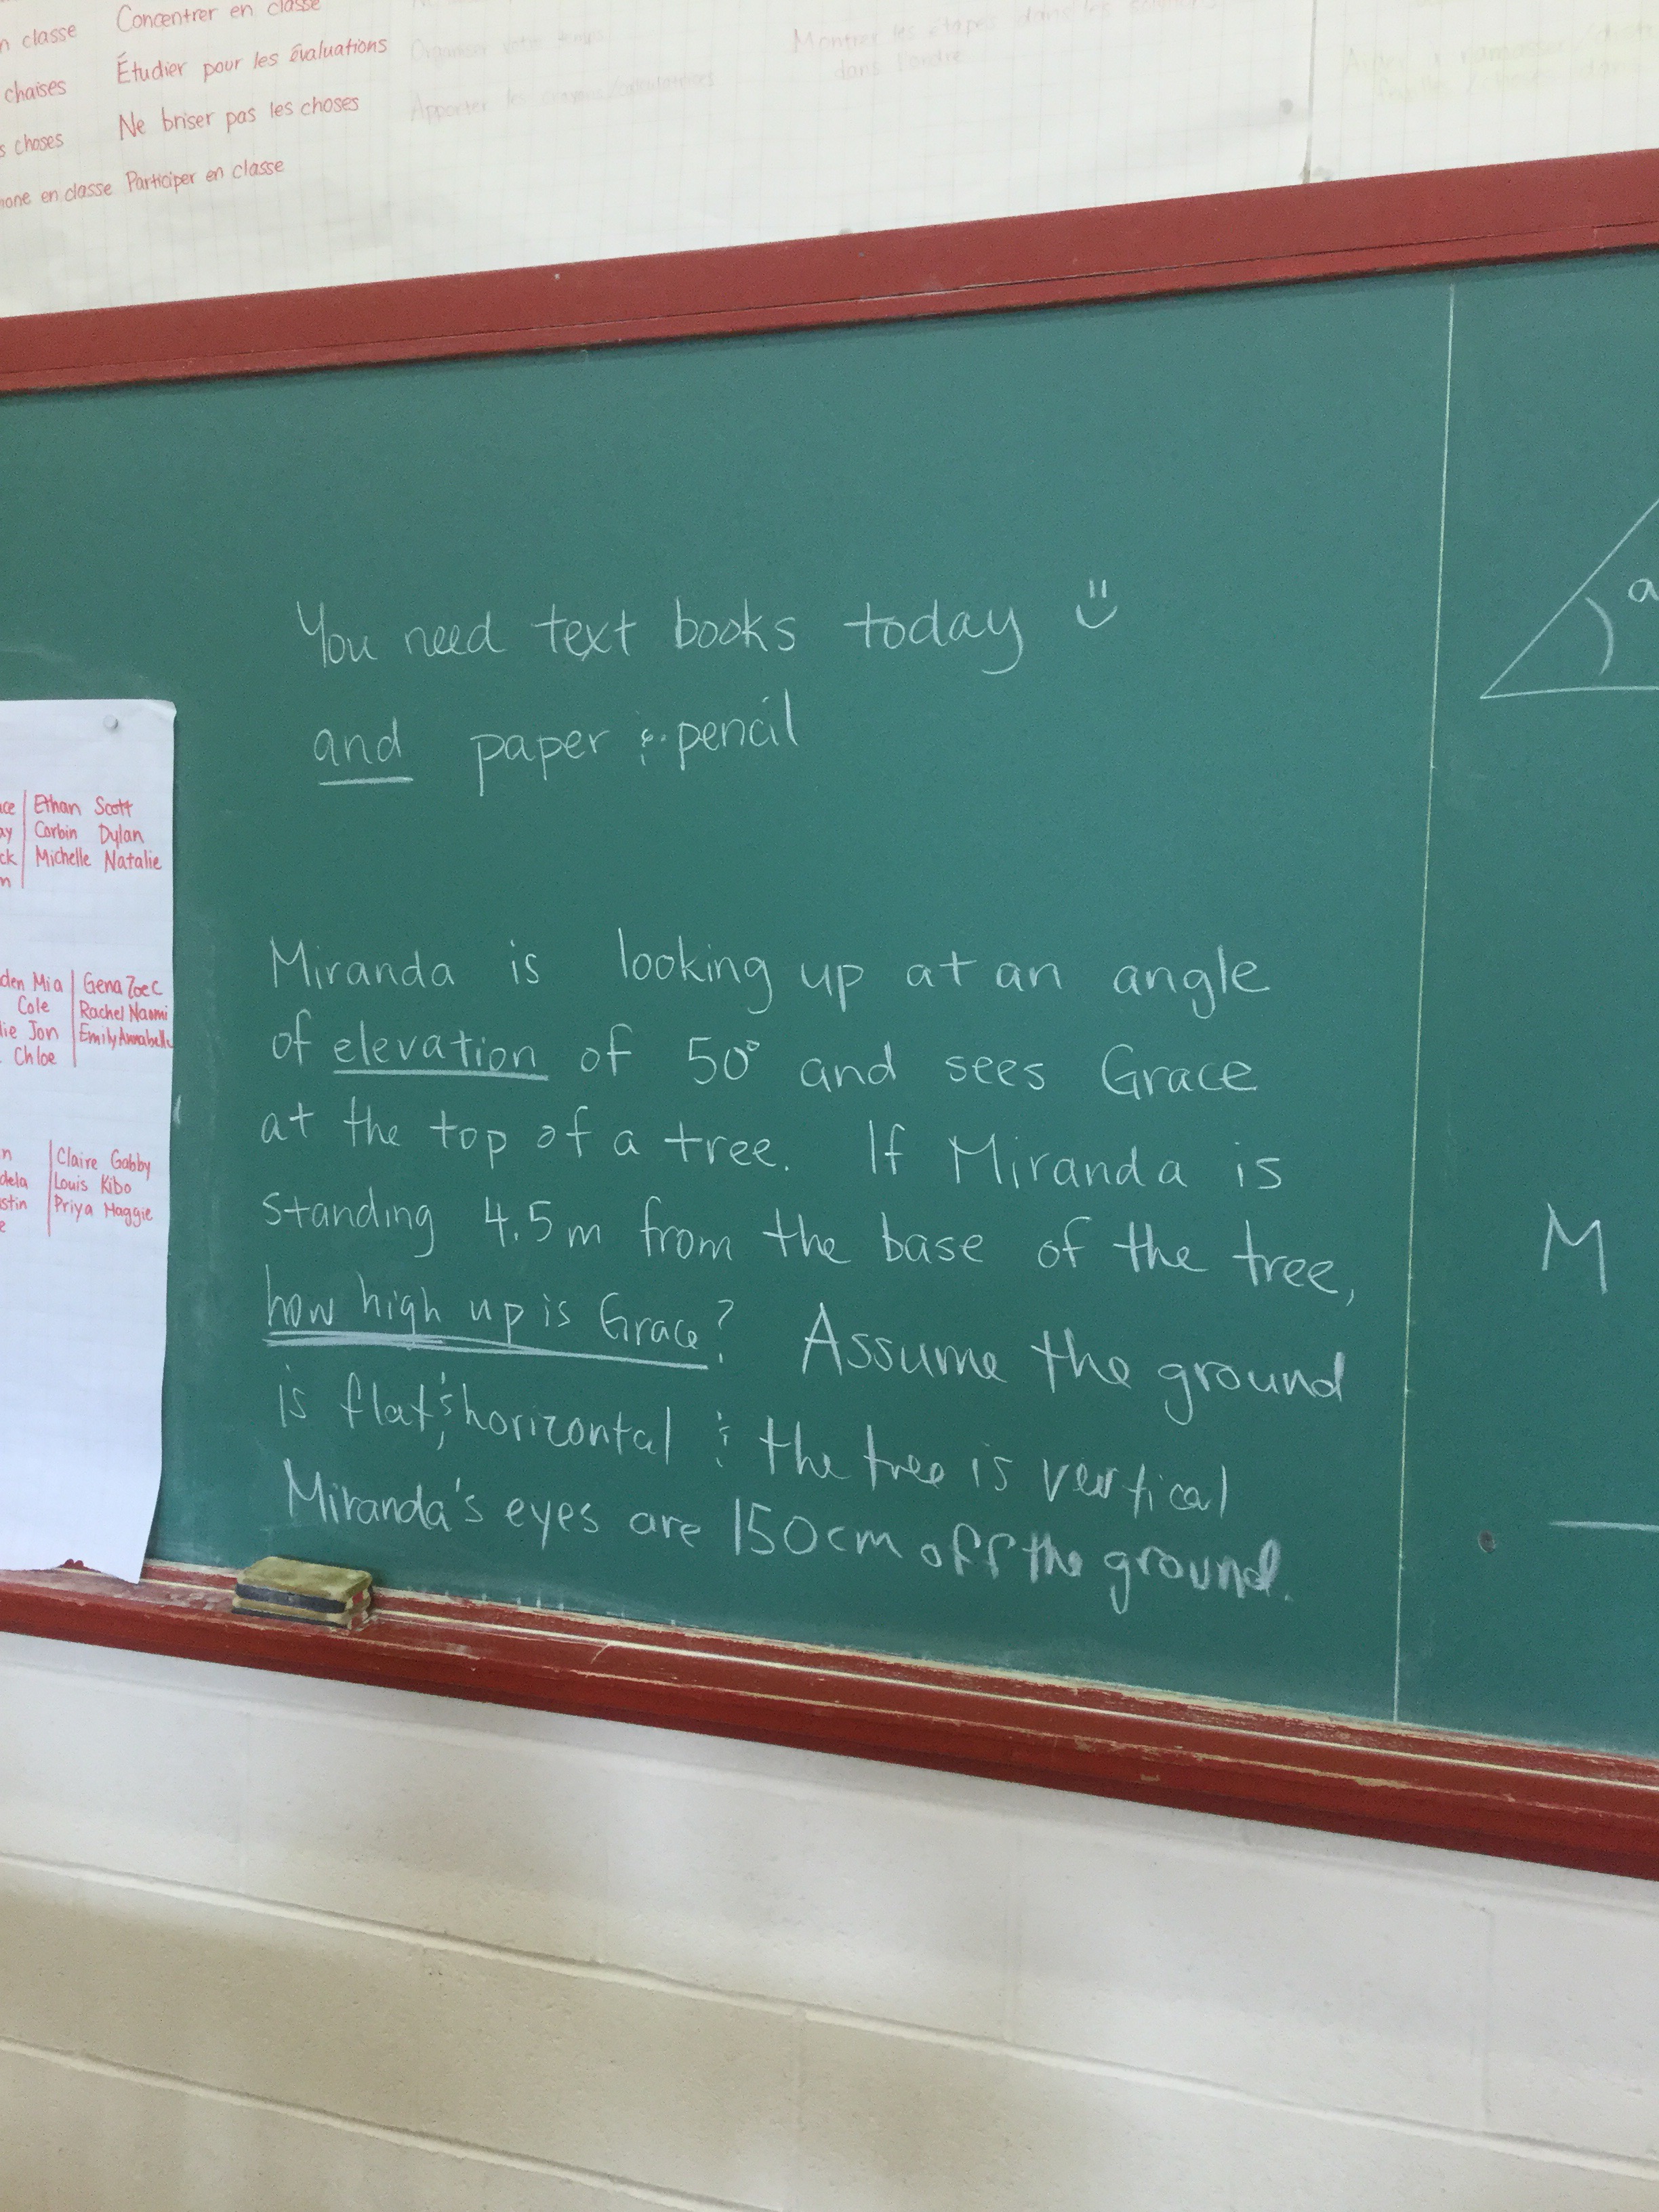 n classe Concentrer en classe
chaises Étudier pour les évaluations
s choses Ne briser pas les choses
en classe Participer en classe
Organiser votre temps
Apporter les crayons/calculatrices
Montrer les étapes dans les
dans l'ordre
You need text books today
and paper & pencil
ce Ethan Scott
ay Corbin Dylan
ck Michelle Natalie
n
den Mia Gena Zoe C
Cole Rachel Naomi
lie Jon Emily Annabelle
Chloe
n Claire Gabby
dela Louis Kibo
stin Priya Maggie
e
Miranda is looking up at an angle
of elevation of 50° and sees Grace
at the top of a tree. If Miranda is
standing 4.5m from the base of the tree,
how high up is Grace? Assume the ground
is flat, & horizontal & the tree is vertical
Miranda's eyes are 150cm off the ground.
a
M